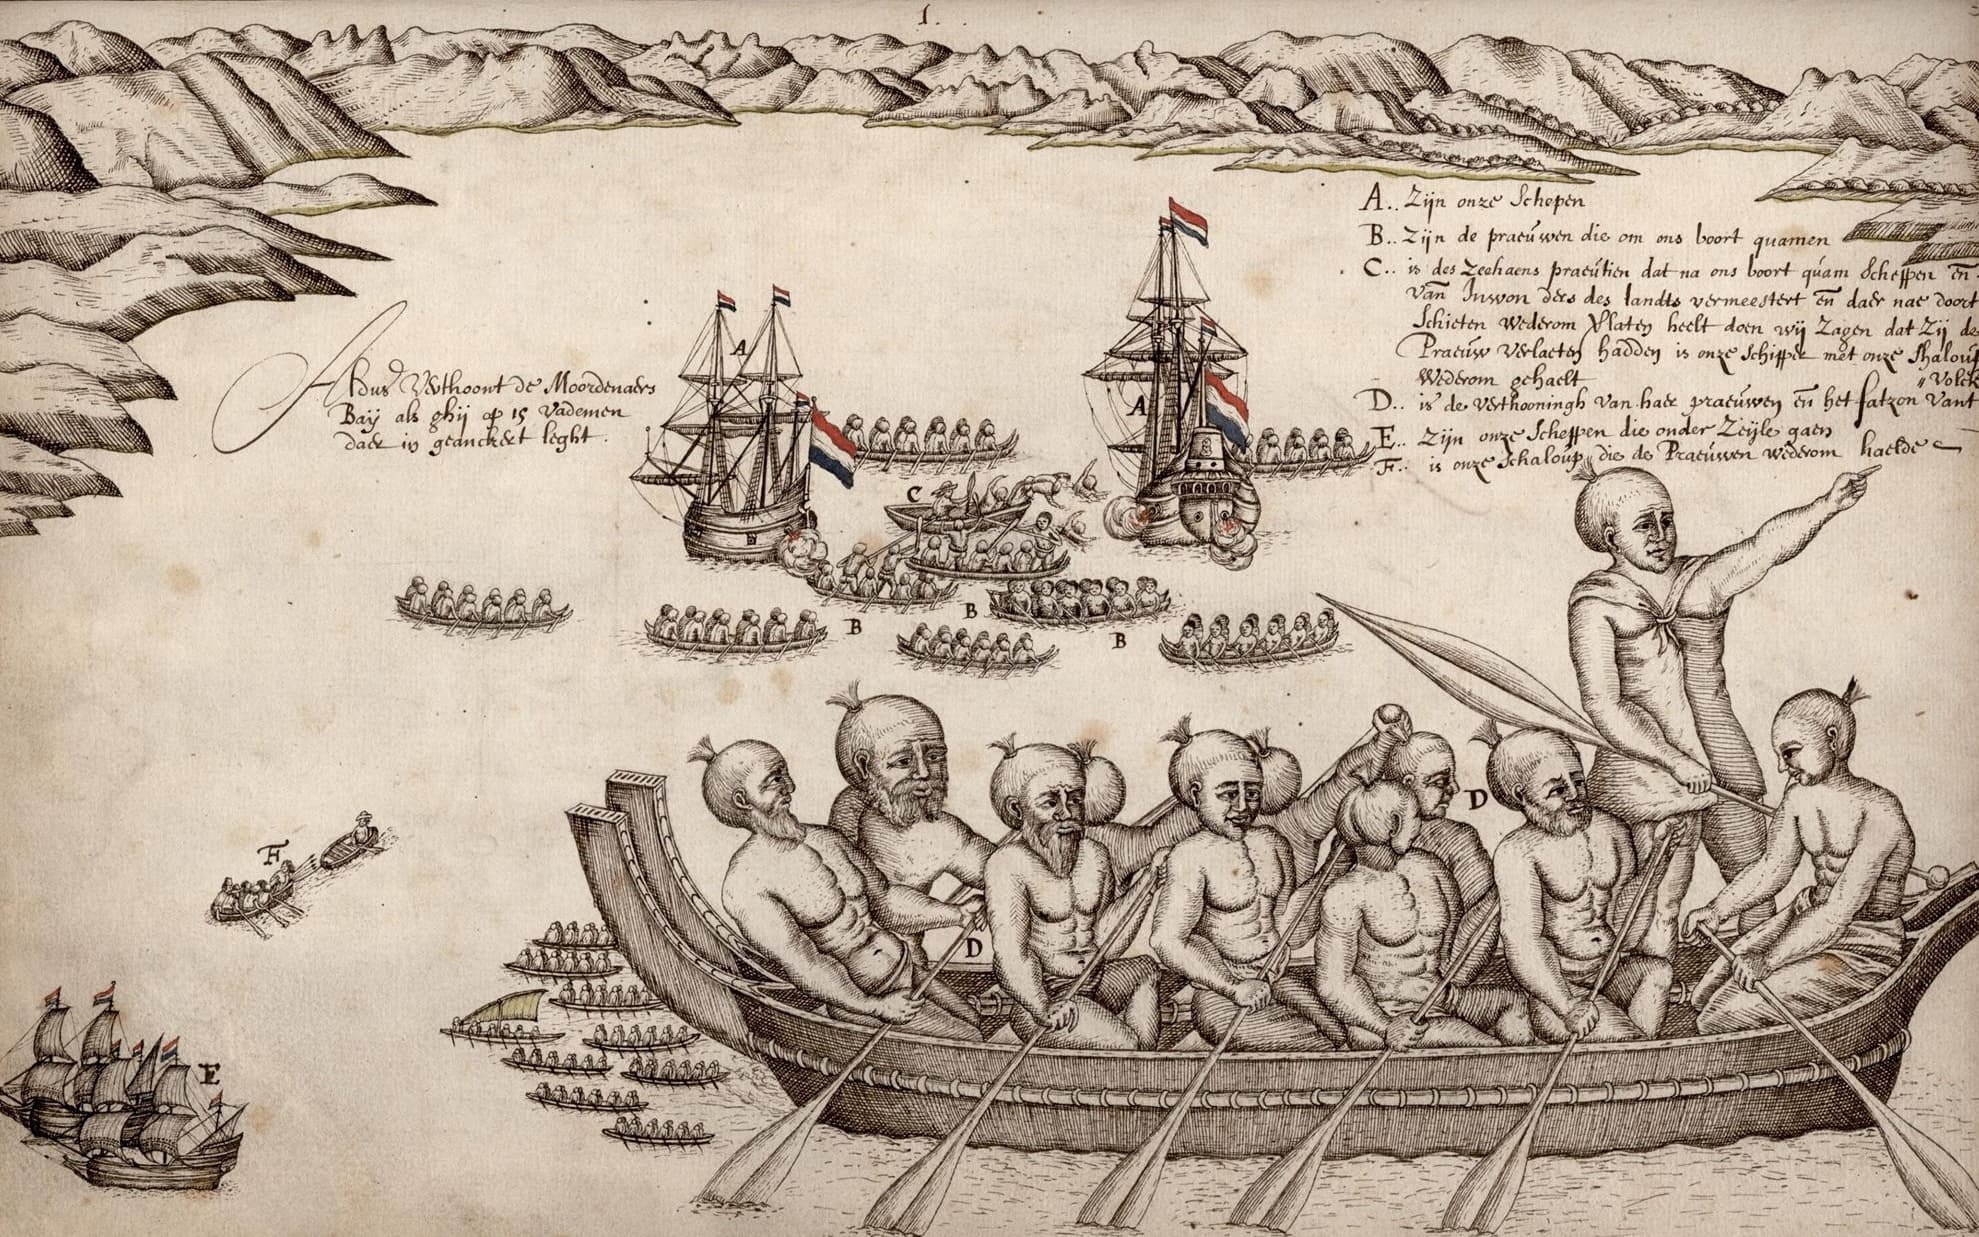 1.
A.. Zijn onze Schepen
B.. Zijn de praeúwen die om ons boort quamen
C.. is des Zeehaens praeútien dat na ons boort qúam Scheppen en
van Inwon ders des landts vermeestert en daer nae doort
Schieten Wederom Verlaten heelt doen wij Zagen dat Zij de
Praeúw Verlaeten hadden is onze Schipper met onze Shaloup
Wederom gehaelt
"Volck
D.. is de Verthooningh van haer praeúwen en het fatzon vant
E.. Zijn onze Scheppen die onder Zeijle gaen
F.. is onze Schaloúp die de Praeúwen wederom haelde
A
A
Aldus Verthoont de Moordenaers
Baij als ghij op 15 Vademen
daer in geanckert leght.
C
B
B
B
D
F
D
E